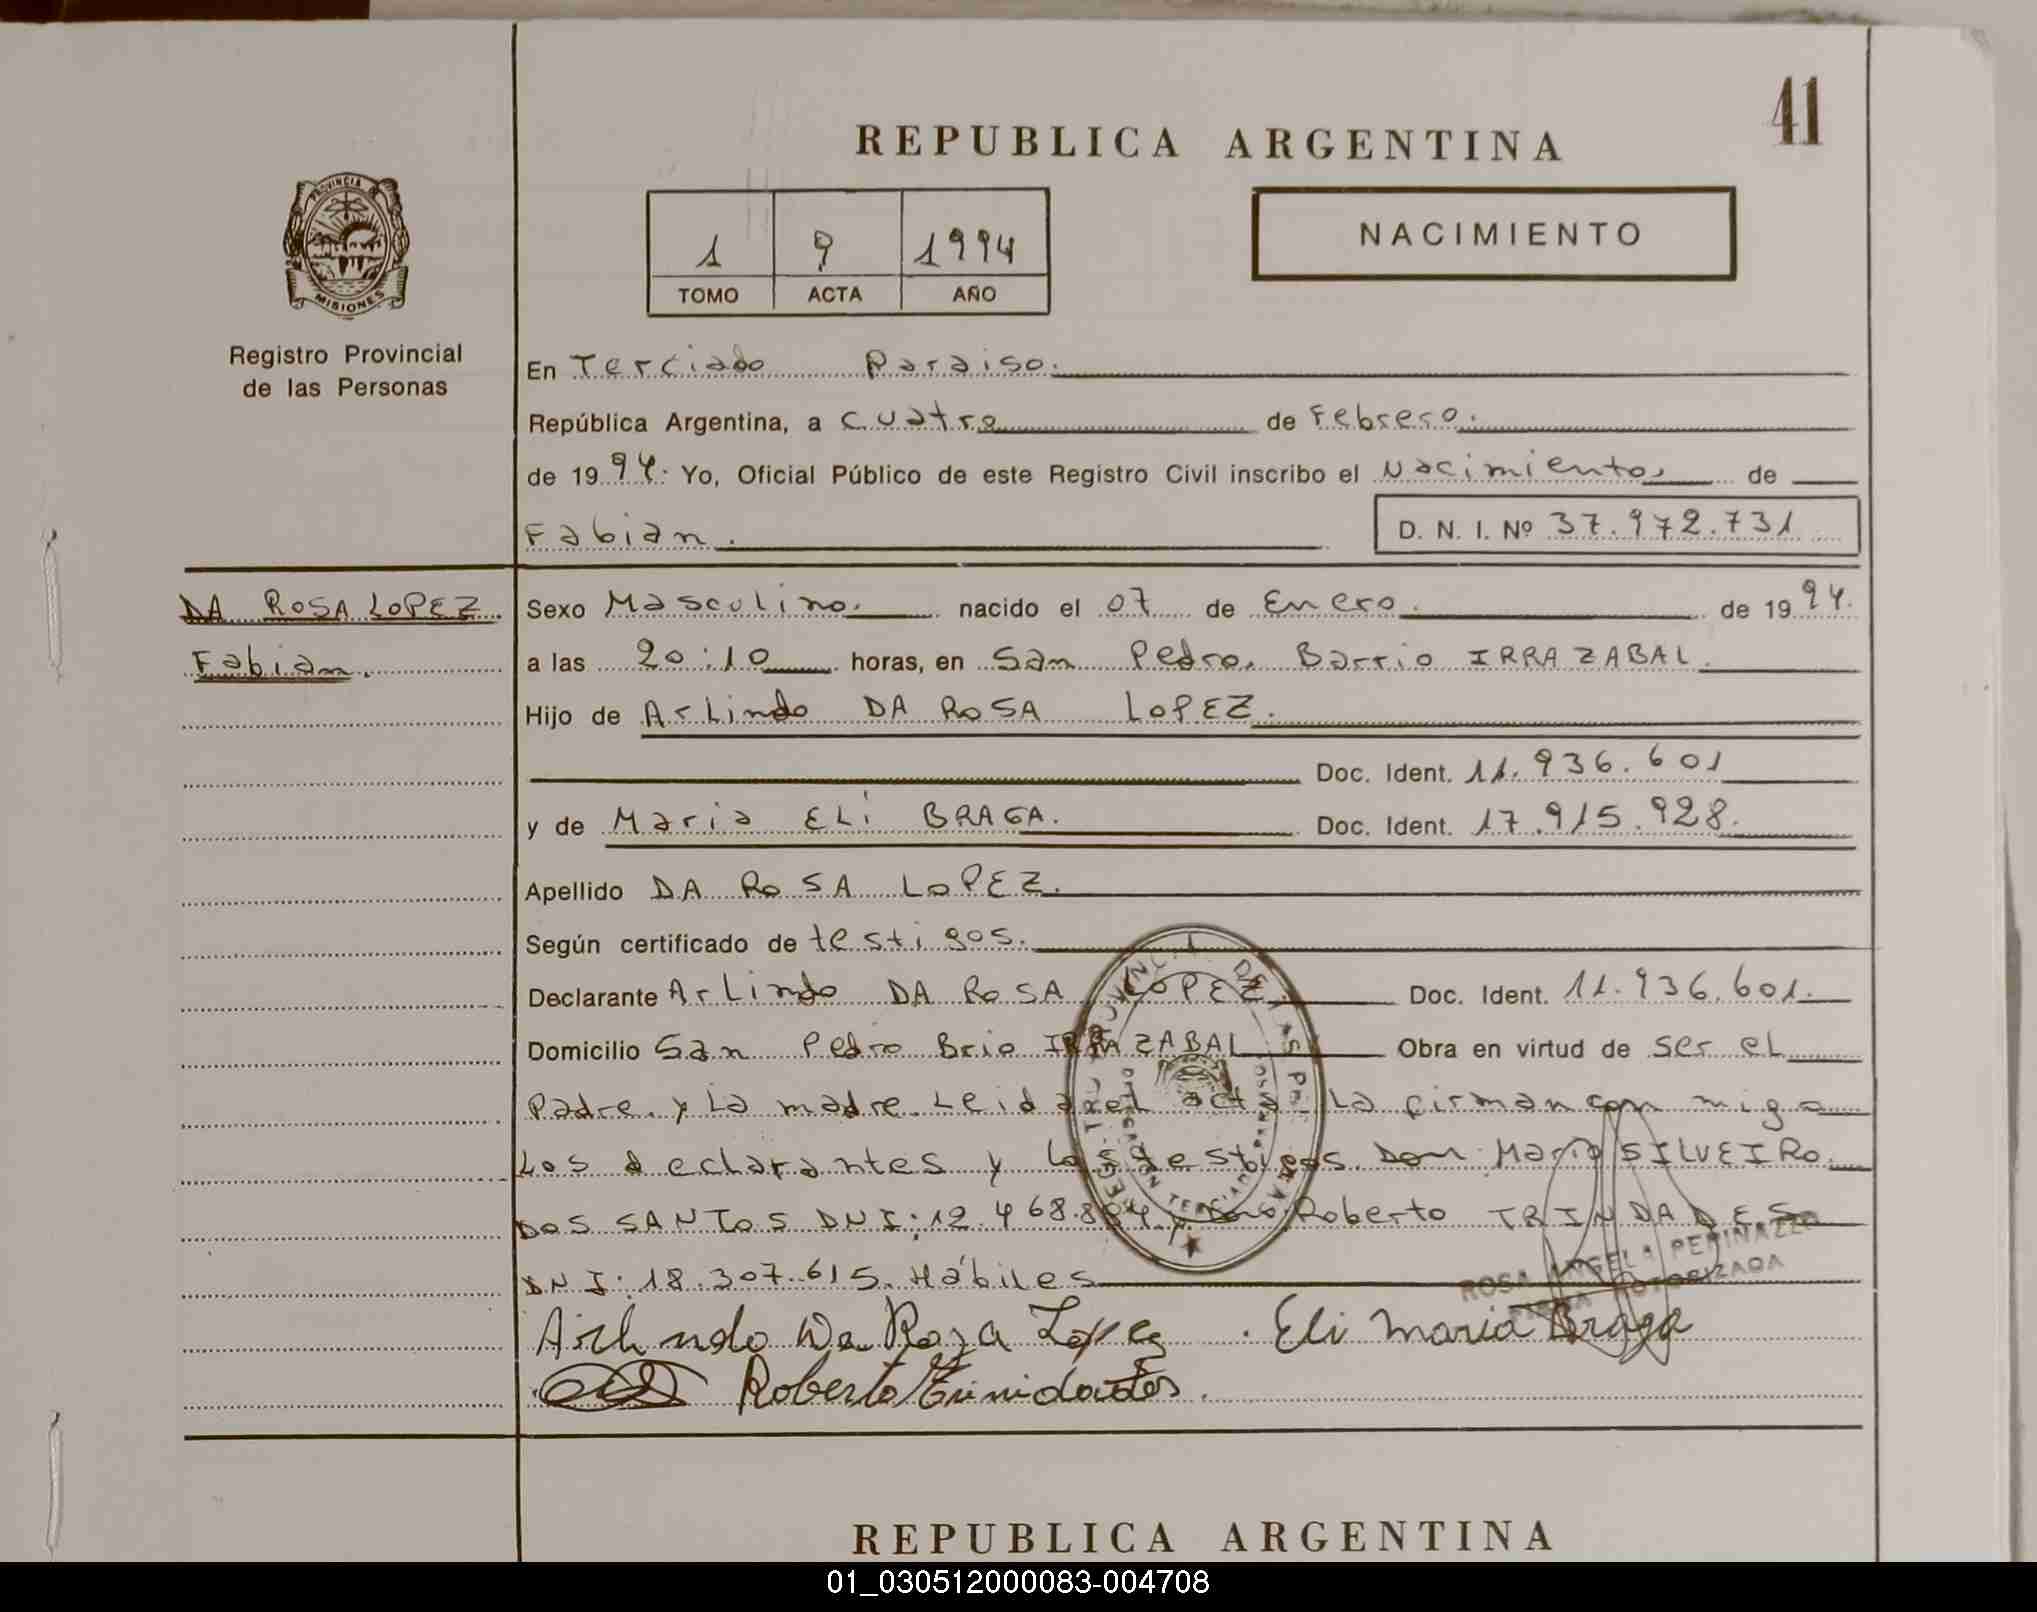 41
REPUBLICA ARGENTINA
PROVINCIA DE
MISIONES
1 9 1994
TOMO ACTA AÑO
NACIMIENTO
Registro Provincial
de las Personas
En Terciado Paraiso.
República Argentina, a cuatro de Febrero.
de 1994. Yo, Oficial Público de este Registro Civil inscribo el Nacimiento, de
Fabian. D. N. I. Nº 37.972.731
DA ROSA LOPEZ
Fabian.
Sexo Masculino. nacido el 07 de Enero. de 1994.
a las 20:10 horas, en San Pedro, Barrio IRRAZABAL.
Hijo de Arlindo DA ROSA LOPEZ.
Doc. Ident. 11.936.601
y de Maria ELÍ BRAGA. Doc. Ident. 17.915.928.
Apellido DA ROSA LOPEZ.
Según certificado de testigos.
Declarante Arlindo DA ROSA LOPEZ Doc. Ident. 11.936.601.
Domicilio San Pedro Brio IRRAZABAL Obra en virtud de ser el
Padre, y La madre. Leida el acta La firman con migo
Los declarantes y los testigos Don Mario SILVEIRO
DOS SANTOS DNI: 12.468. y Roberto TRINDADES
DNI: 18.307.615. Hábiles
ROSA ANGELA PERINAZZO
FIRMA AUTORIZADA
Arlindo Da Rosa Lopez. Eli Maria Braga
Roberto Trinidades.
REPUBLICA ARGENTINA
01_030512000083-004708